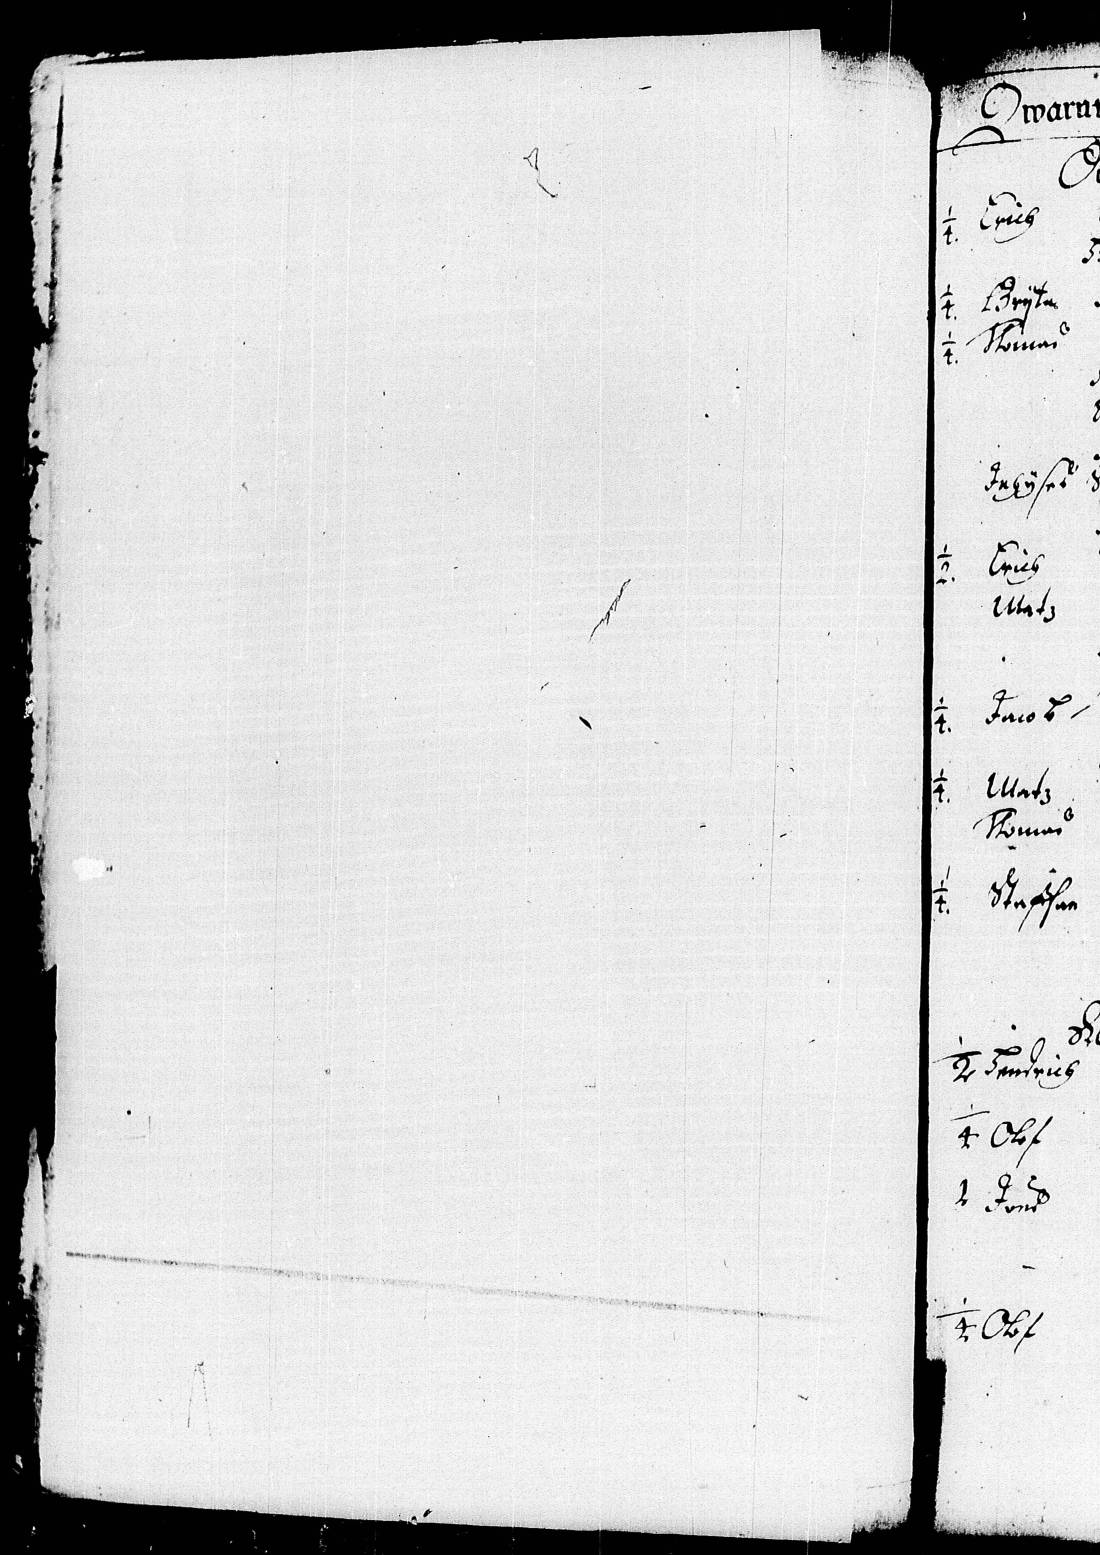 Qwarn
1/4. Erich
1/4. Bryta
1/4. Thomas
1/2. Erich
Matz
1/4. Jacob
1/4. Matz
Thomas
1/4. Staffan
1/2 Hendrich
1/4 Olof
1 Jöns
1/4 Olof